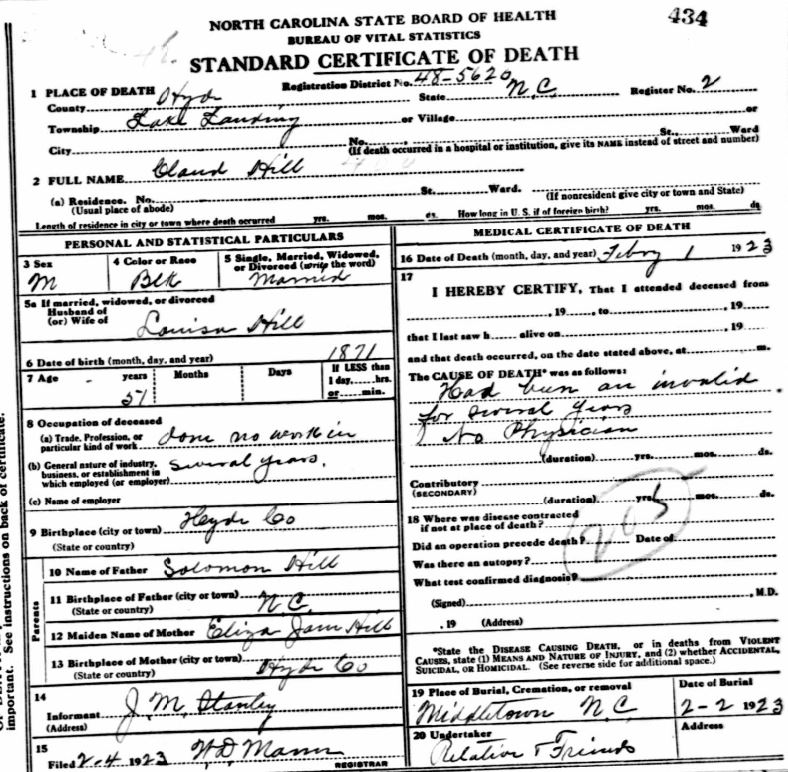 434
NORTH CAROLINA STATE BOARD OF HEALTH
BUREAU OF VITAL STATISTICS
STANDARD CERTIFICATE OF DEATH
1 PLACE OF DEATH Registration District No. 48-5620
County Hyde State N.C. Register No. 2
Township Lake Landing or Village or
City No. St., Ward
(If death occurred in a hospital or institution, give its NAME instead of street and number)
2 FULL NAME Claud Hill
(a) Residence. No. St. Ward.
(Usual place of abode) (If nonresident give city or town and State)
Length of residence in city or town where death occurred yrs. mos. ds. How long in U. S. if of foreign birth? yrs. mos. ds.
PERSONAL AND STATISTICAL PARTICULARS
3 Sex 4 Color or Race 5 Single, Married, Widowed, or Divorced (write the word)
M Blk Married
5a If married, widowed, or divorced
Husband of
(or) Wife of Louisa Hill
6 Date of birth (month, day, and year) 1871
7 Age years Months Days If LESS than
1 day, hrs.
51 or min.
8 Occupation of deceased
(a) Trade, Profession, or
particular kind of work done no work in
(b) General nature of industry,
business, or establishment in
which employed (or employer) several years.
(c) Name of employer
9 Birthplace (city or town) Hyde Co
(State or country)
Parents
10 Name of Father Solomon Hill
11 Birthplace of Father (city or town) N.C.
(State or country)
12 Maiden Name of Mother Eliza Jane Hill
13 Birthplace of Mother (city or town) Hyde Co
(State or country)
14
Informant J. M. Stanley
(Address)
15
Filed 2-4 1923 W.D. Mann
REGISTRAR
MEDICAL CERTIFICATE OF DEATH
16 Date of Death (month, day, and year) Febry 1 1923
17
I HEREBY CERTIFY, That I attended deceased from
, 19 to , 19
that I last saw h alive on , 19
and that death occurred, on the date stated above, at m.
The CAUSE OF DEATH* was as follows:
Had been an invalid
for several years
No Physician
(duration) yrs. mos. ds.
Contributory
(SECONDARY)
(duration) yrs. mos. ds.
18 Where was disease contracted
if not at place of death?
205
Did an operation precede death? Date of
Was there an autopsy?
What test confirmed diagnosis?
(Signed) , M.D.
, 19 (Address)
*State the DISEASE CAUSING DEATH, or in deaths from VIOLENT
CAUSES, state (1) MEANS AND NATURE OF INJURY, and (2) whether ACCIDENTAL,
SUICIDAL, OR HOMICIDAL. (See reverse side for additional space.)
19 Place of Burial, Cremation, or removal Date of Burial
Middletown N.C. 2-2 1923
20 Undertaker Address
Relative & Friends
important. See instructions on back of certificate.